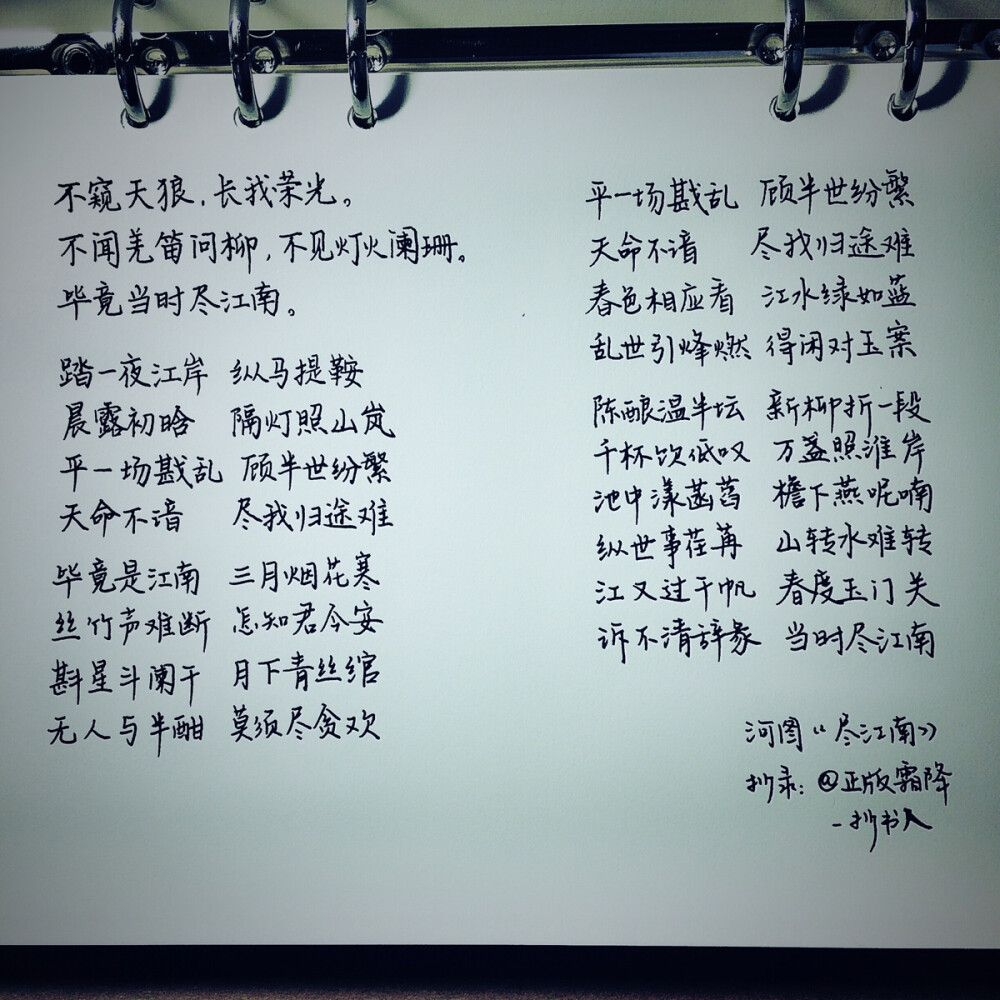 不窥天狼，长我荣光。
不闻羌笛问柳，不见灯火阑珊。
毕竟当时尽江南。
踏一夜江岸 纵马提鞍
晨露初晗 隔灯照山岚
平一场戡乱 顾半世纷繁
天命不谙 尽我归途难
毕竟是江南 三月烟花寒
丝竹声难断 怎知君今安
斟星斗阑干 月下青丝绾
无人与半酣 莫须尽贪欢
平一场戡乱 顾半世纷繁
天命不谙 尽我归途难
春色相应看 江水绿如蓝
乱世引烽燃 得闲对玉案
陈酿温半坛 新柳折一段
千杯饮低叹 万盏照淮岸
池中漾菡萏 檐下燕呢喃
纵世事荏苒 山转水难转
江又过千帆 春度玉门关
诉不清辞彖 当时尽江南
河图《尽江南》
抄录：@正版霜降
-抄书人